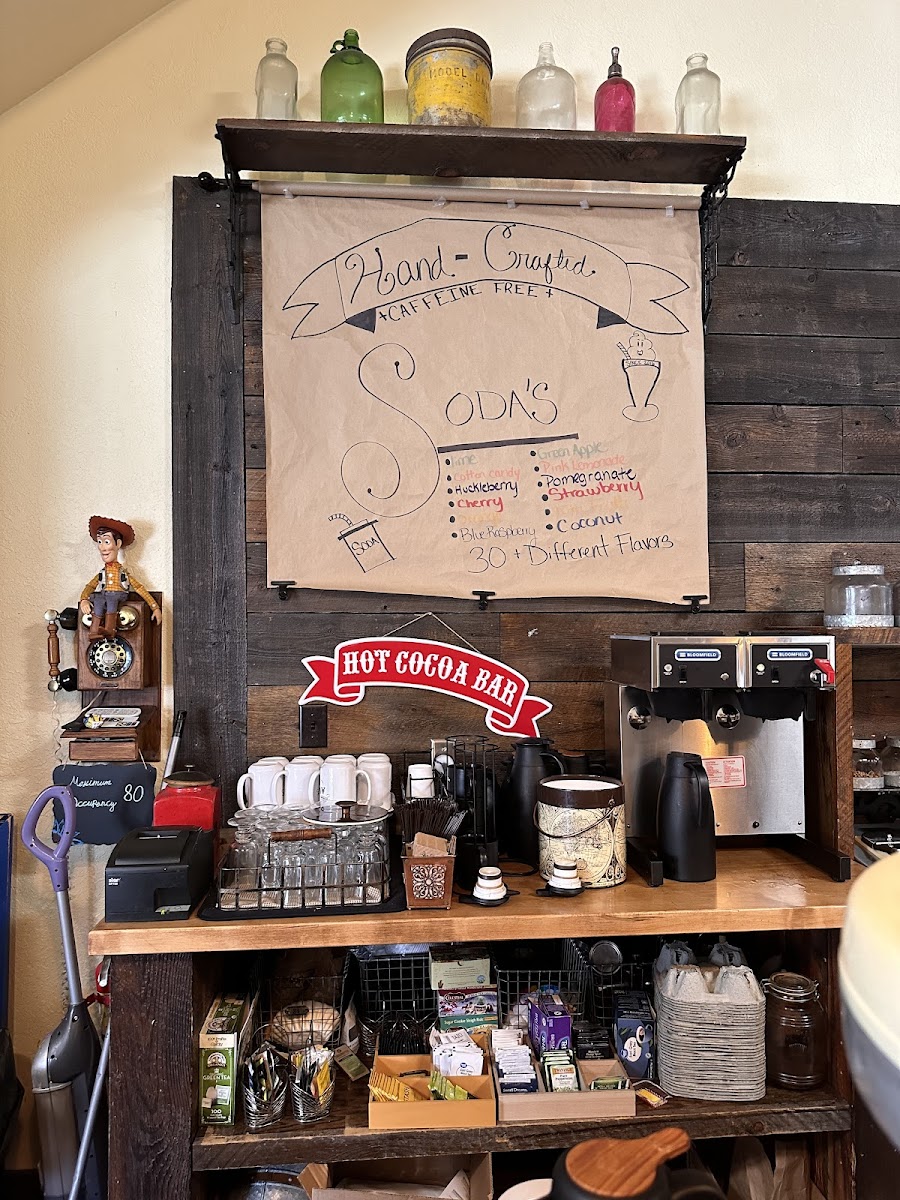 MODEL
Hand-Crafted
+CAFFEINE FREE+
SODA'S
Cotton Candy
Huckleberry
Cherry
Blue Raspberry
Green Apple
Pink Lemonade
Pomegranate
Strawberry
Coconut
30+ Different Flavors
SODA
HOT COCOA BAR
BLOOMFIELD
BLOOMFIELD
Maximum
Occupancy 80
star
GREEN TEA
100